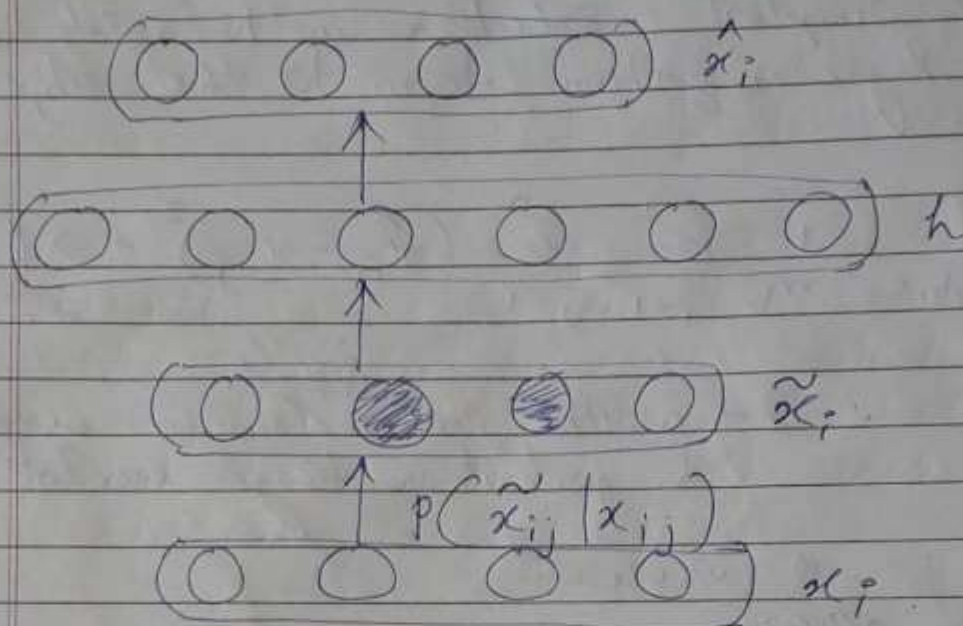 x̂ᵢ
h
x̃ᵢ
P(x̃ᵢⱼ | xᵢⱼ)
xᵢ